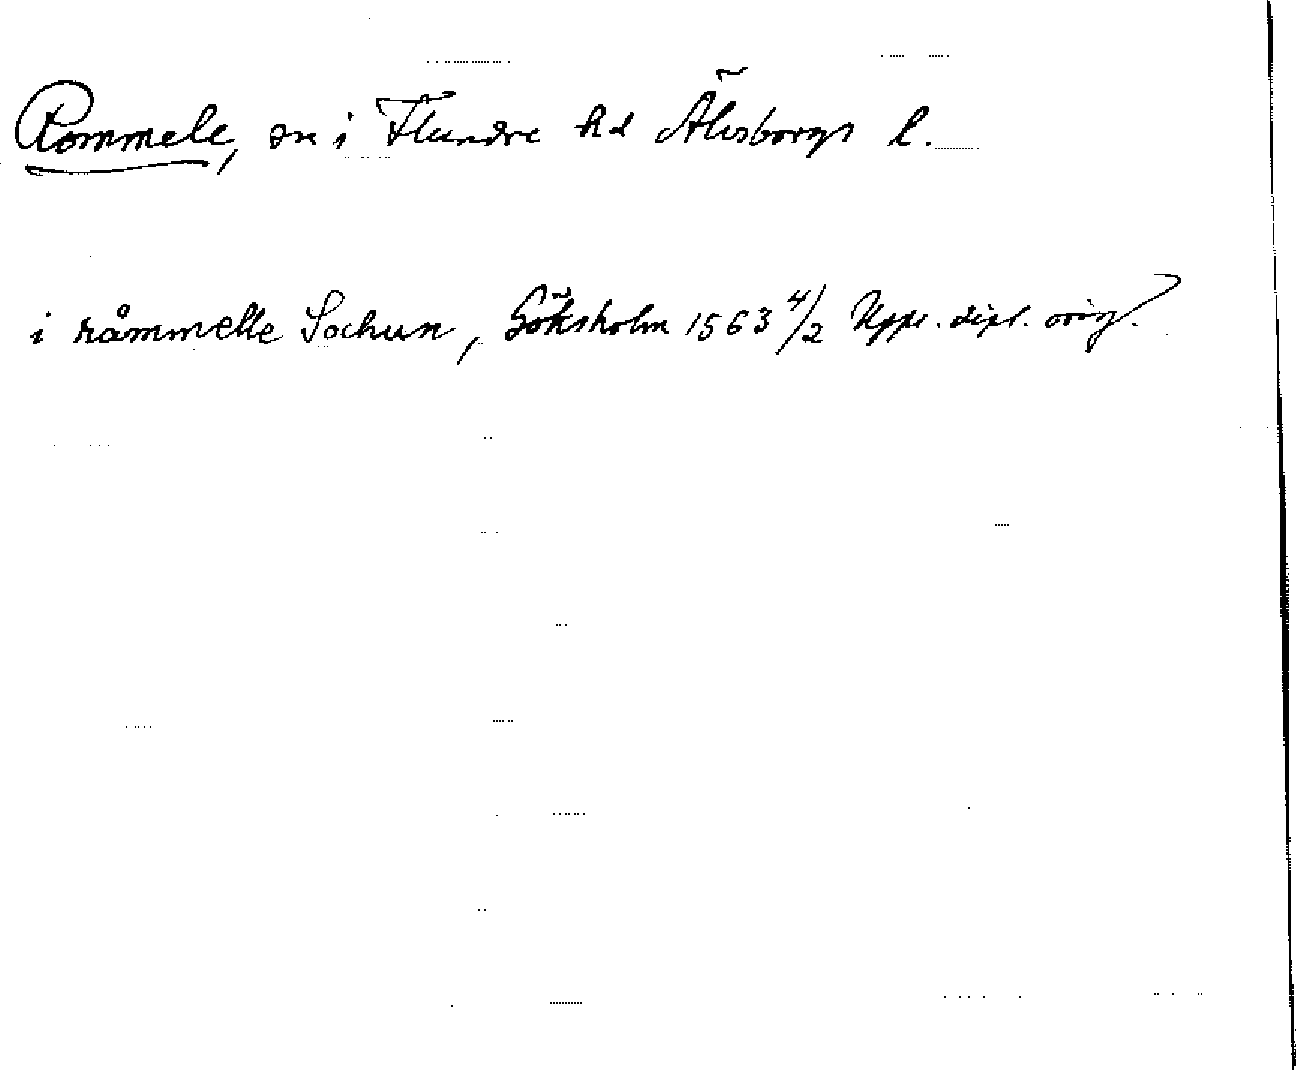 Rommele, sn i Flundre hd Älvsborgs l.
i råmmelle Sochun, Höksholm 1563 4/2 Upps. dipl. orig.